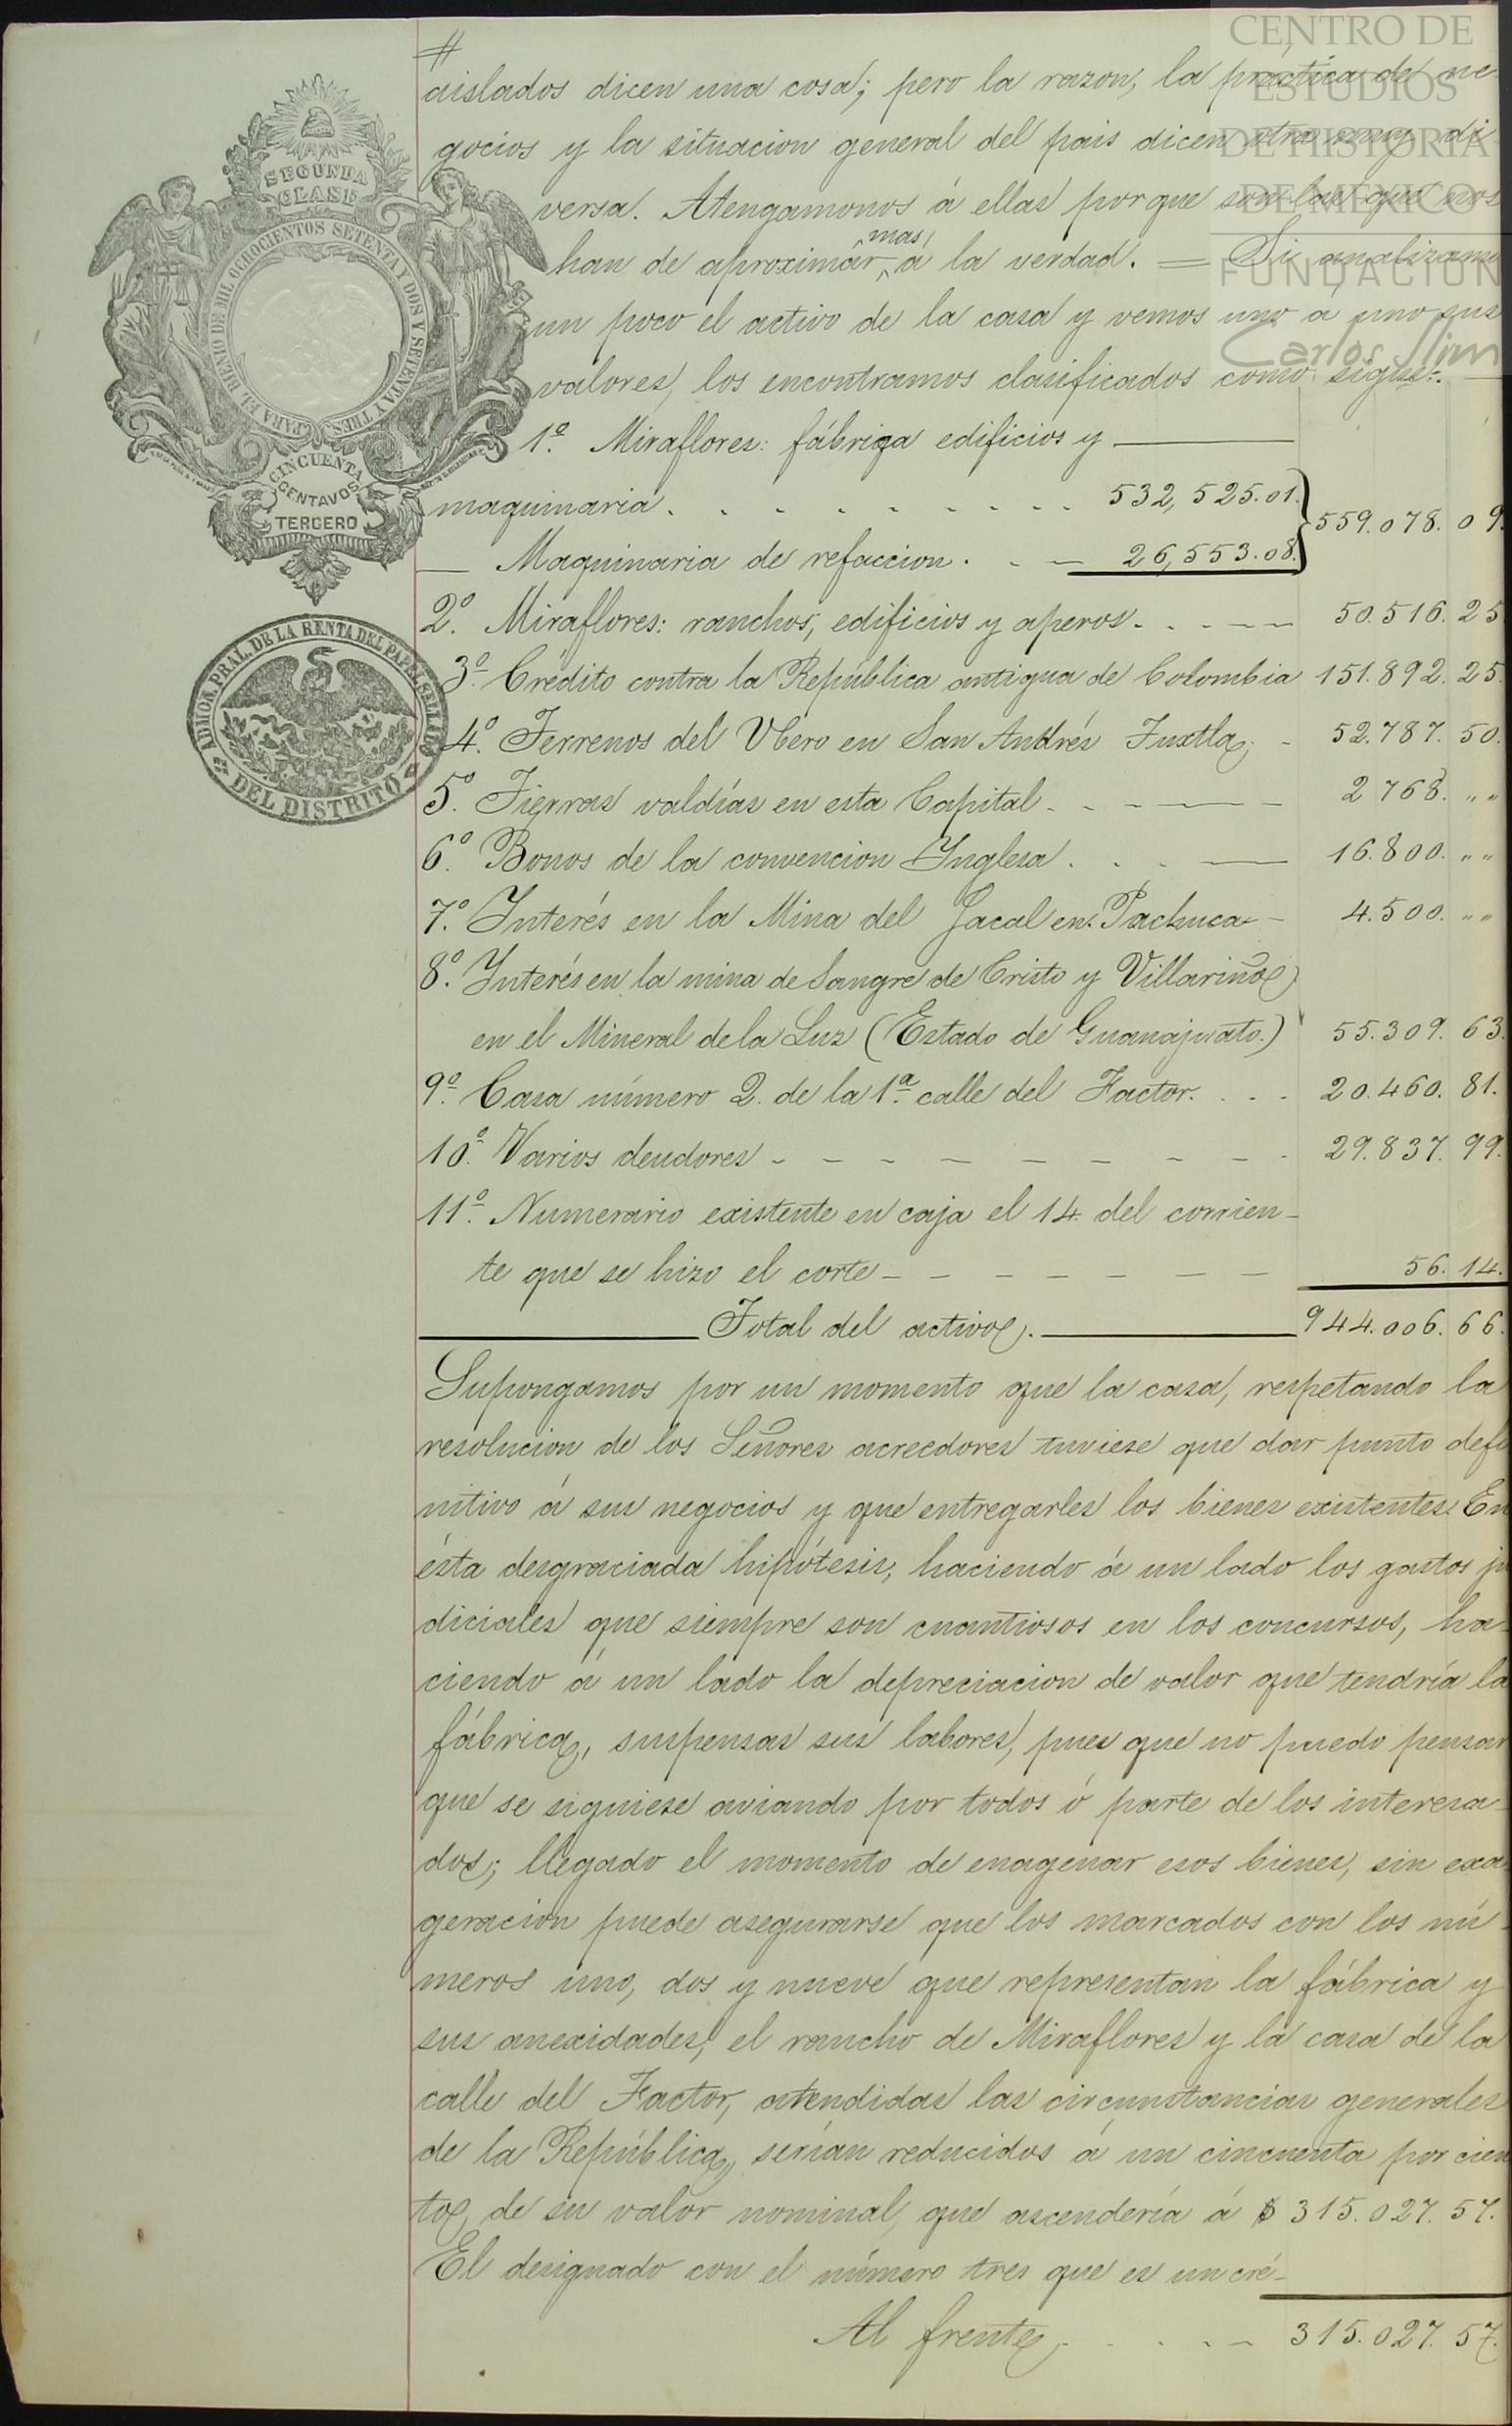 CENTRO DE
ESTUDIOS
DE HISTORIA
DE MEXICO
FUNDACION
Carlos Slim
SEGUNDA
CLASE
PARA EL BIENIO DE MIL OCHOCIENTOS SETENTA Y DOS Y SETENTA Y TRES
CINCUENTA
CENTAVOS
TERCERO
ADMON. PRAL. DE LA RENTA DEL PAPEL SELLADO
DEL DISTRITO
#
aislados dicen una cosa; pero la razon, la práctica de ne-
gocios y la situacion general del pais dicen otra muy di-
versa. Atengamonos á ellas porque son las que nos
han de aproximar mas á la verdad. = Si analizamos
un poco el activo de la casa y vemos uno á uno sus
valores, los encontramos clasificados como sigue:
1º. Miraflores: fábriga edificios y
maquinaria. . . . . . . . . 532,525.01.
559.078.09.
Maquinaria de refaccion. . - 26,553.08.
2º. Miraflores: ranchos, edificios y aperos. . . - - - 50.516.25
3º. Crédito contra la República antigua de Colombia 151.892.25.
4º. Terrenos del Vbero en San Andrés Tuxtla, - 52.787.50.
5º. Tierras valdías en esta Capital. - - - 2768. „ „
6º. Bonos de la convencion Ynglesa. . . . - 16.800. „ „
7º. Ynterés en la Mina del Jacal en Pachuca - 4.500. „ „
8º. Ynterés en la mina de Sangre de Cristo y Villariño
en el Mineral de la Luz (Estado de Guanajuato.) 55.309.63.
9º. Casa número 2. de la 1ª calle del Factor. . . . 20.460.81.
10º. Varios deudores - - - - - - - - - 29.837.99.
11º. Numerario existente en caja el 14 del corrien-
te que se hizo el corte - - - - - - - 56.14.
Total del activo. 944.006.66.
Supongamos por un momento que la casa, respetando la
resolucion de los Señores acreedores tuviese que dar punto defi
nitivo á sus negocios y que entregarles los bienes existentes. En
ésta desgraciada hipótesis, haciendo á un lado los gastos ju
diciales que siempre son cuantiosos en los concursos, ha-
ciendo á un lado la depreciacion de valor que tendría la
fábrica, suspensas sus labores, pues que no puedo pensar
que se siguiese aviando por todos ó parte de los interesa-
dos; llegado el momento de enagenar esos bienes, sin exa
geracion puede asegurarse que los marcados con los nú-
meros uno, dos y nueve que representan la fábrica y
sus anexidades, el rancho de Miraflores y la casa de la
calle del Factor, atendidas las circunstancias generales
de la República, serían reducidos á un cincuenta por cien
to, de su valor nominal, que ascendería á $ 315.027.57.
El designado con el número tres que es un cré-
Al frente, . . . . - 315.027.57.